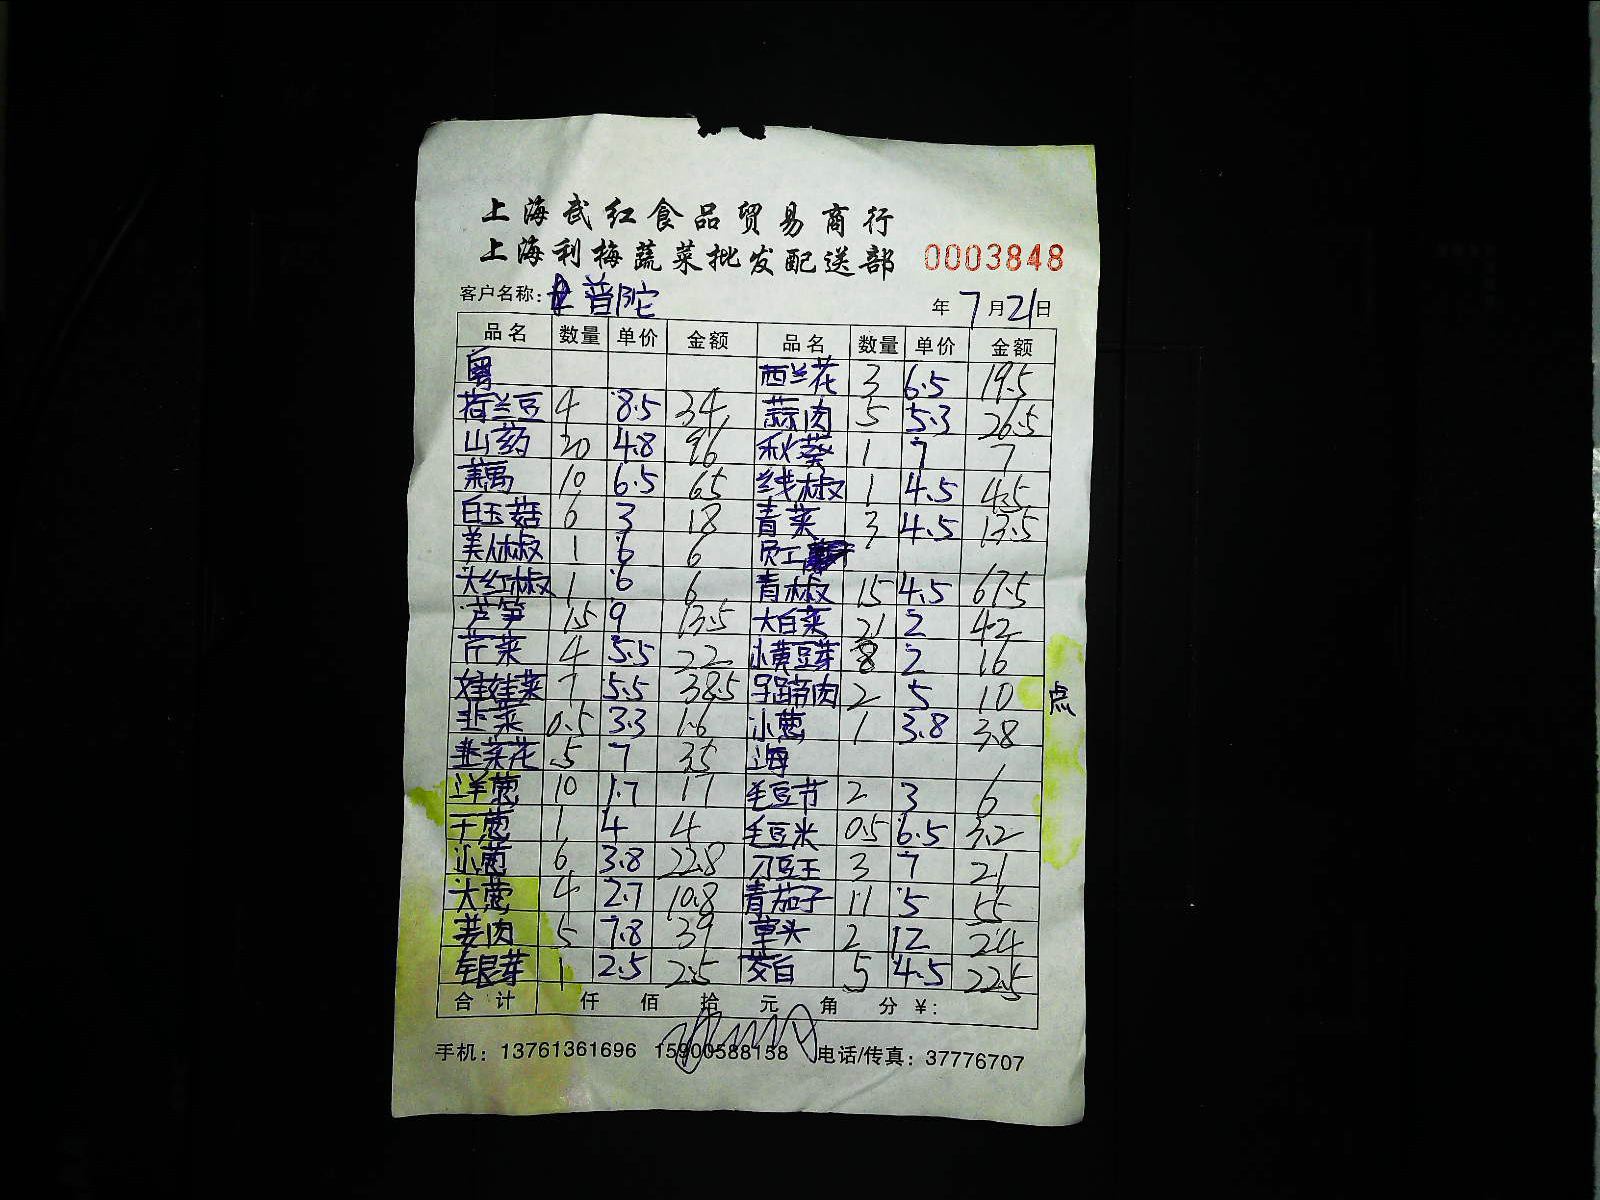 上海武红食品贸易商行
上海利梅蔬菜批发配送部 0003848
客户名称: 普陀 年 7 月 21 日
品名 数量 单价 金额 品名 数量 单价 金额
粤 西兰花 3 6.5 19.5
荷兰豆 4 8.5 34 蒜肉 5 5.3 26.5
山药 20 4.8 96 秋葵 1 7 7
藕 10 6.5 65 线椒 1 4.5 4.5
白玉菇 6 3 18 青菜 3 4.5 13.5
美人椒 1 6 6 员工
大红椒 1 6 6 青椒 15 4.5 67.5
芦笋 1.5 9 13.5 大白菜 21 2 42
芹菜 4 5.5 22 小黄豆芽 8 2 16
娃娃菜 7 5.5 38.5 肉 2 5 10 点
韭菜 0.5 3.3 1.6 小葱 1 3.8 3.8
韭菜花 5 7 35 上海
洋葱 10 1.7 17 毛豆节 2 3 6
干葱 1 4 4 毛豆米 0.5 6.5 3.2
小葱 6 3.8 22.8 刀豆王 3 7 21
大葱 4 2.7 10.8 青茄子 11 5 55
姜肉 5 7.8 39 草头 2 12 24
银芽 1 2.5 2.5 茭白 5 4.5 22.5
合计 仟 佰 拾 元 角 分 ¥:
手机: 13761361696 15900588158 电话/传真: 37776707